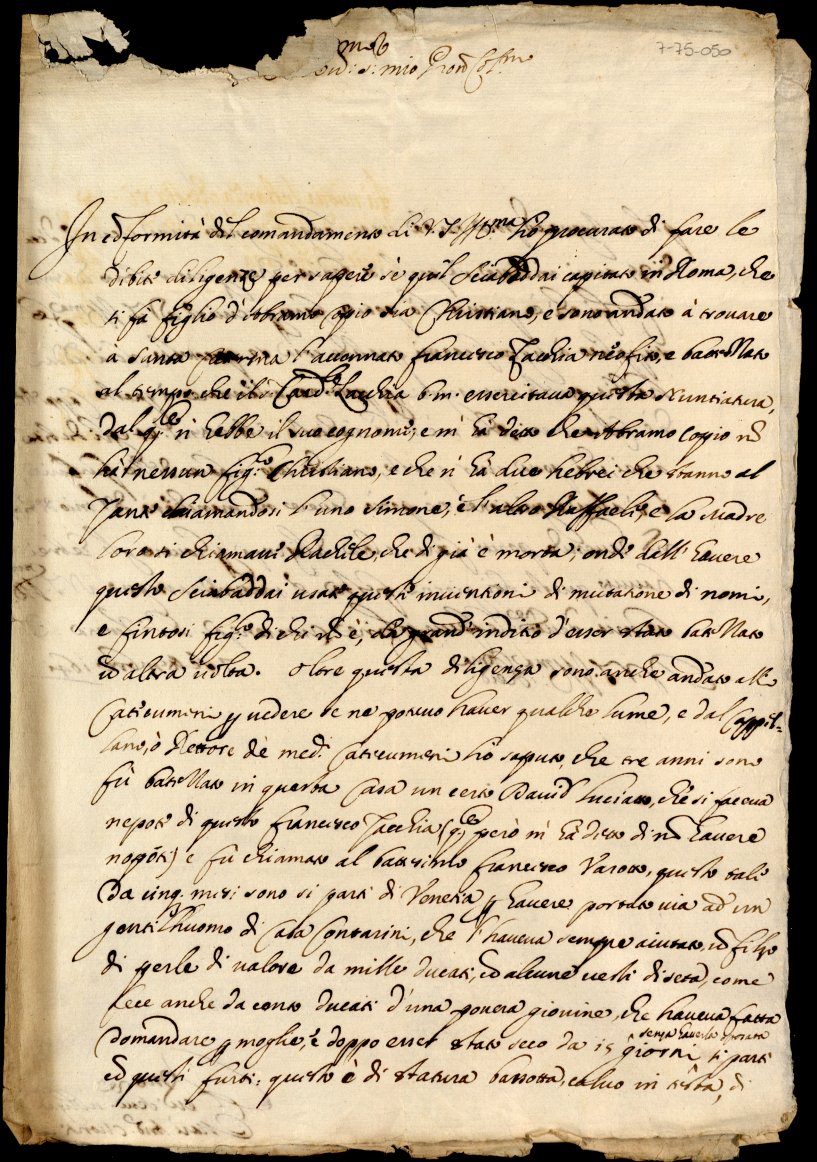 7-75-050
mio
In conformità del comandamento di V.S. Ill.ma hò procurato di fare le
debite diligenze per sapere se quel Sciabaddai capitato in Roma, che
si fà figlio d'Abramo Coppio sia Christiano, e sono andato à trovare
à Santa l'accennato Francesco Zacchia neofito, e battezzato
al tempo che il S. Card.le Zacchia b.m. essercitava questa Nuntiatura,
dal q.le n'hebbe il suo cognome, e m'hà detto che Abramo Coppio nõ
hà nessun fig.o Christiano, e che n'hà due hebrei che stanno al
Zante chiamandosi l'uno Simone, e l'altro Raffaele, e la Madre
loro si chiamava Rachele, che di già è morta; onde dall'havere
questo Sciabaddai usate queste inventioni di mutatione di nomi,
e fintosi fig.o di chi nõ è, dà grand'inditio d'esser stato battezzato
ed altra volta. Oltre questa diligenza sono anche andato alli
Catecumeni p vedere se ne potevo haver qualche lume, e dal Cappel=
lano, ò Rettore de med.i Catecumeni hò saputo, che tre anni sono
fù battezzato in questa Casa un certo David Luciatto, che si faceva
nepote di questo Francesco Zacchia (q.le però m'hà detto di nõ havere
nepoti) e fù chiamato al battesimo Francesco Varotto, questo tale
da cinq. mesi sono si partì di Venetia p havere portato via ad un
gentilhuomo di Casa Contarini, che l'haveva sempre aiutato, ũ filzo
di perle di valore da mille ducati, ed alcune vesti di seta, come
fece anche da cento ducati d'una povera giovine, che haveva fatta
domandare p moglie, e doppo esser stato seco da 15 giorni si partì
senza haverla sposata
cõ questi furti: questo è di statura bassotta, calvo in testa, di